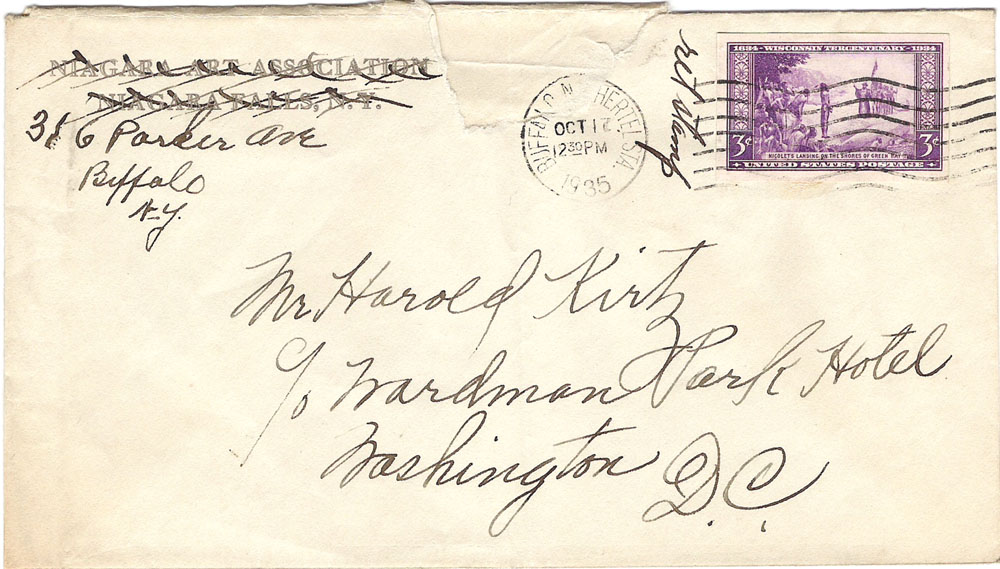 NIAGARA ART ASSOCIATION
NIAGARA FALLS, N.Y.
316 Parker Ave
Buffalo
N.Y.
BUFFALO N.Y. HERTEL STA.
OCT 17
12 30 PM
1935
ret stamp
1634 - WISCONSIN TERCENTENARY - 1934
3¢ 3¢
NICOLET'S LANDING ON THE SHORES OF GREEN BAY
UNITED STATES POSTAGE
Mr. Harold Kirtz
c/o Wardman Park Hotel
Washington
D.C.